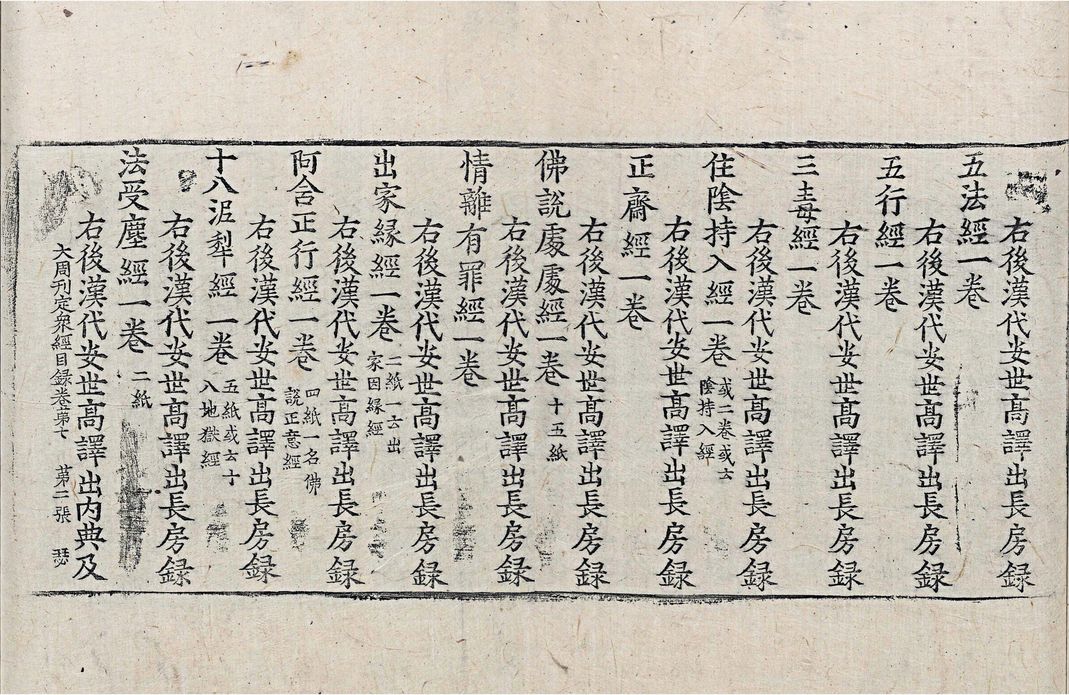 右後漢代安世高譯出長房録
五法經一巻
右後漢代安世高譯出長房録
五行經一巻
右後漢代安世高譯出長房録
三毒經一巻
右後漢代安世高譯出長房録
住陰持入經一巻 或二巻或云
陰持入經
右後漢代安世高譯出長房録
正齋經一巻
右後漢代安世高譯出長房録
佛說處處經一巻 十五紙
右後漢代安世高譯出長房録
情離有罪經一巻
右後漢代安世高譯出長房録
出家縁經一巻 二紙一云出
家因縁經
右後漢代安世高譯出長房録
阿含正行經一巻 四紙一名佛
說正意經
右後漢代安世高譯出長房録
十八泥犁經一巻 五紙或云十
八地獄經
右後漢代安世高譯出長房録
法受塵經一巻 二紙
右後漢代安世高譯出内典及
大周刊定衆經目録巻第七 第二張 瑟